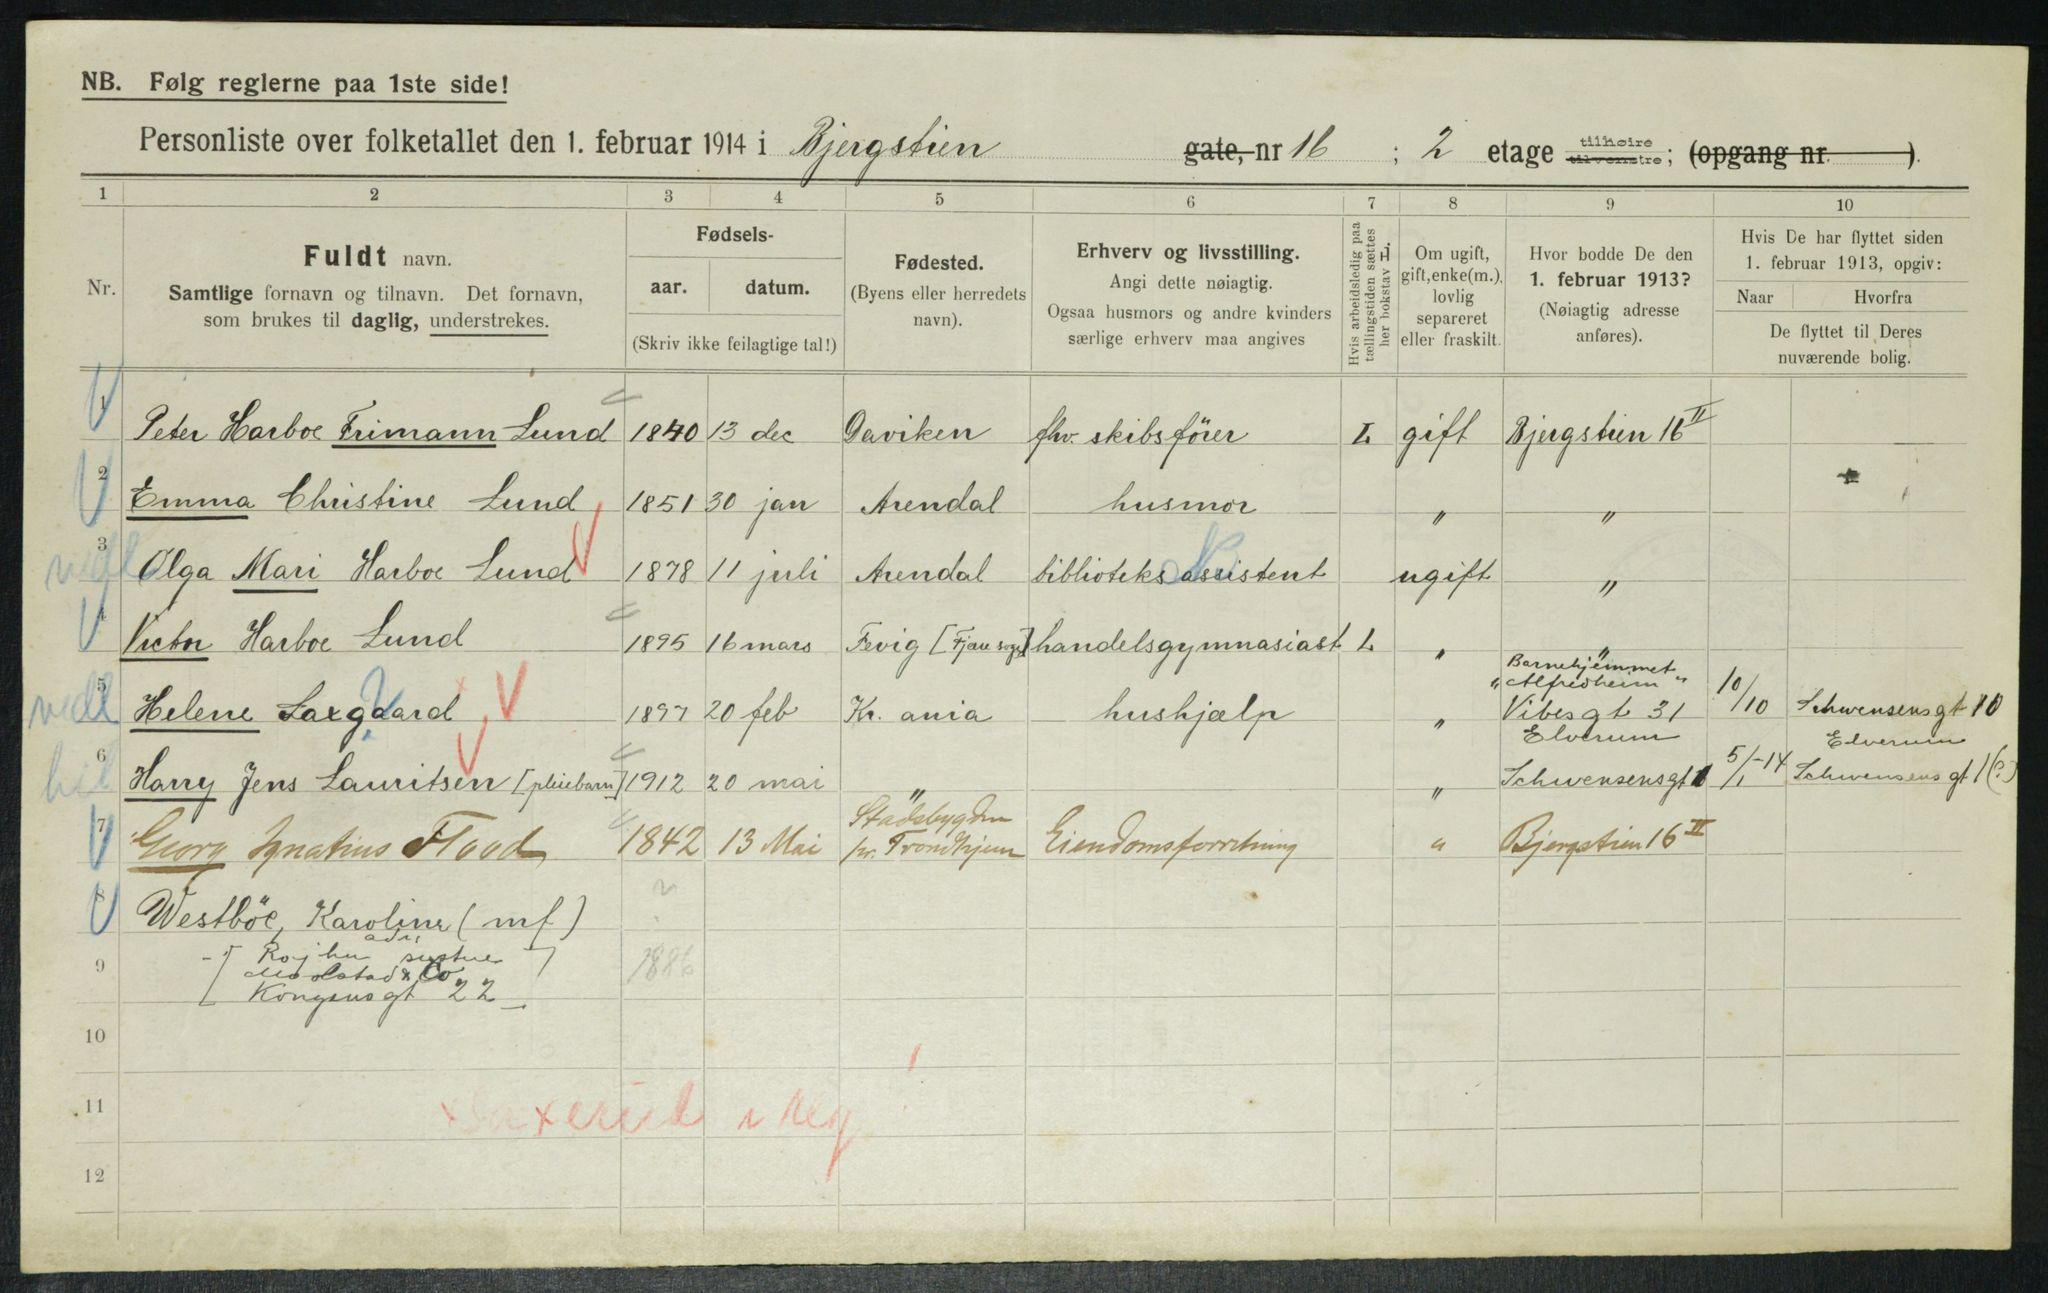 NB. Følg reglerne paa 1ste side!
Personliste over folketallet den 1. februar 1914 i Bjergstien gate, nr 16 ; 2 etage tilhøire tilvenstre; (opgang nr. ).
1 2 3 4 5 6 7 8 9 10
Nr.
Fuldt navn.
Samtlige fornavn og tilnavn. Det fornavn,
som brukes til daglig, understrekes.
Fødsels-
aar. datum.
(Skriv ikke feilagtige tal!)
Fødested.
(Byens eller herredets
navn).
Erhverv og livsstilling.
Angi dette nøiagtig.
Ogsaa husmors og andre kvinders
særlige erhverv maa angives
Hvis arbeidsledig paa
tællingstiden sættes
her bokstav L.
Om ugift,
gift, enke(m.),
lovlig
separeret
eller fraskilt.
Hvor bodde De den
1. februar 1913?
(Nøiagtig adresse
anføres).
Hvis De har flyttet siden
1. februar 1913, opgiv:
Naar Hvorfra
De flyttet til Deres
nuværende bolig.
1 Peter Harboe Frimann Lund 1840 13 dec Daviken fhv. skibsfører L gift Bjergstien 16 II
2 Emma Christine Lund 1851 30 jan Arendal husmor " "
3 Olga Mari Harboe Lund 1878 11 juli Arendal biblioteks assistent ugift "
4 Victor Harboe Lund 1895 16 mars Fevig [Fjære sogn] handelsgymnasiast L " "
Barnehjemmet
"Alfredheim"
5 Helene Saxgaard 1897 20 feb Kr. ania hushjælp " Vibesgt 31 10/10 Schwensensgt 10
Elverum Elverum
6 Harry Jens Lauritsen [pleiebarn] 1912 20 mai " " Schwensensgt 1 5/1-14 Schwensensgt 1 (?)
Stadsbygden
7 Georg Ignatius Flood 1842 13 Mai pr. Trondhjem Eiendomsforretning " Bjergstien 16 II
8 Westböe, Karoline (mf)
adr.
9 1886
& Co
Kongensgt 22
10
11
i
12